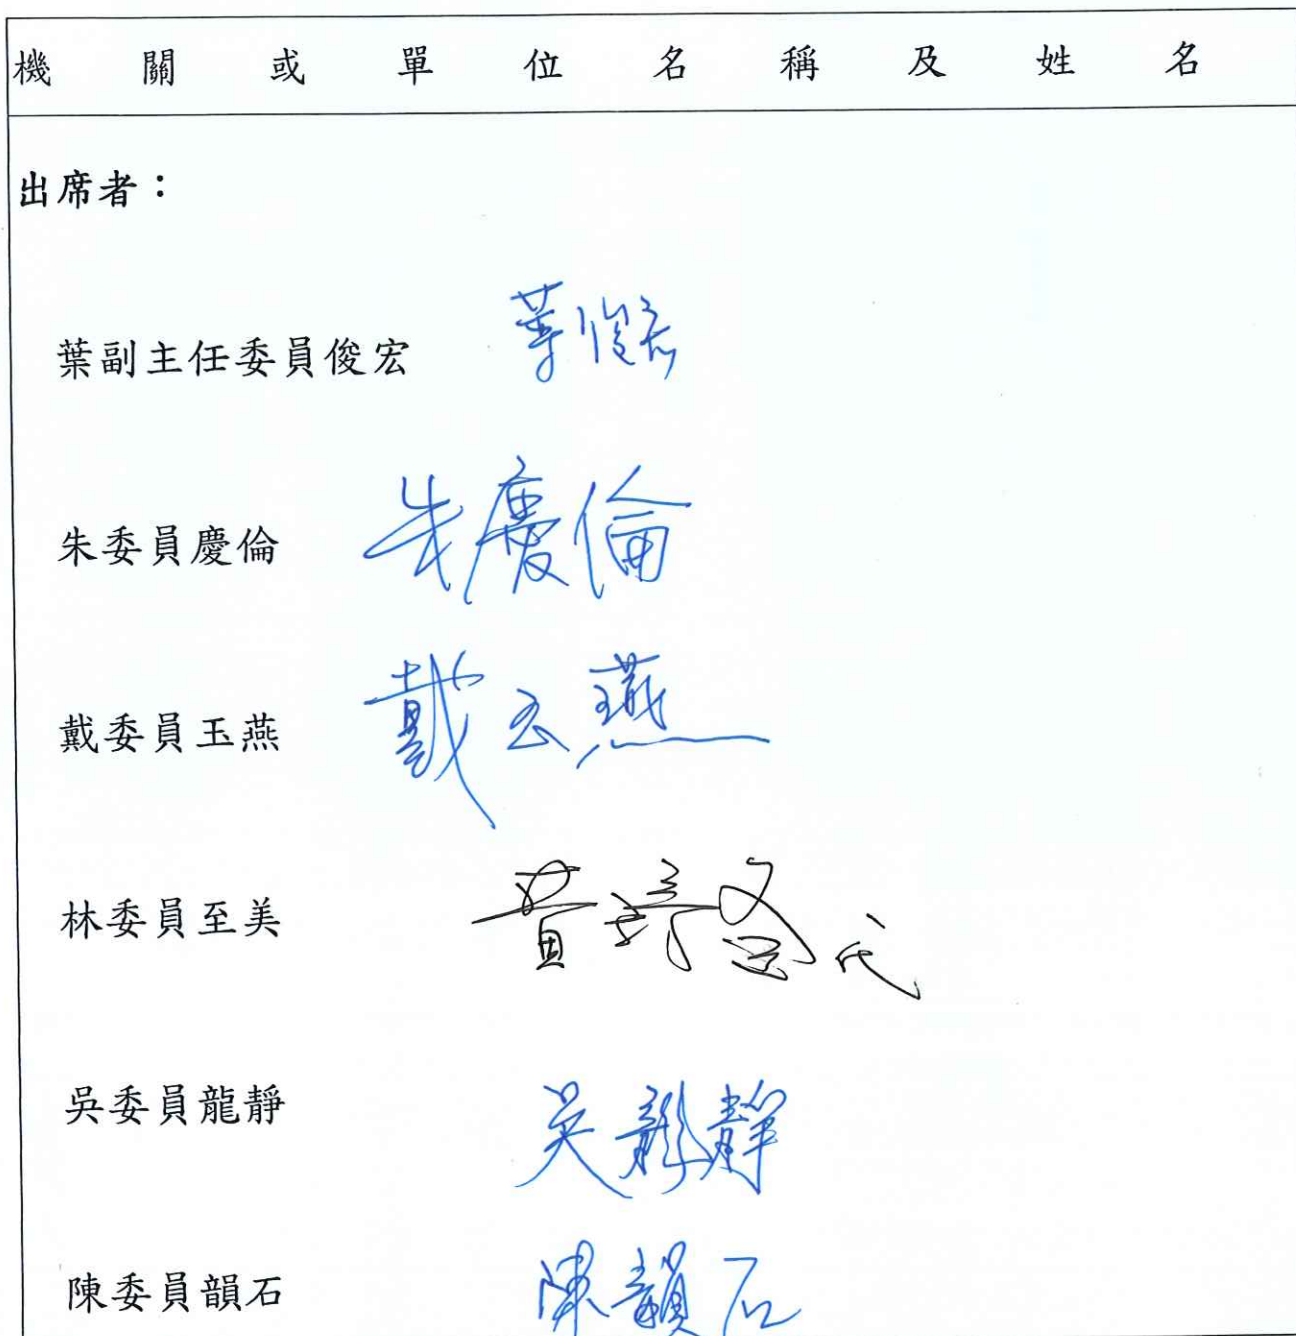 機關或單位名稱及姓名
出席者：
葉副主任委員俊宏 葉俊宏
朱委員慶倫 朱慶倫
戴委員玉燕 戴玉燕
林委員至美 代
吳委員龍靜 吳龍靜
陳委員韻石 陳韻石